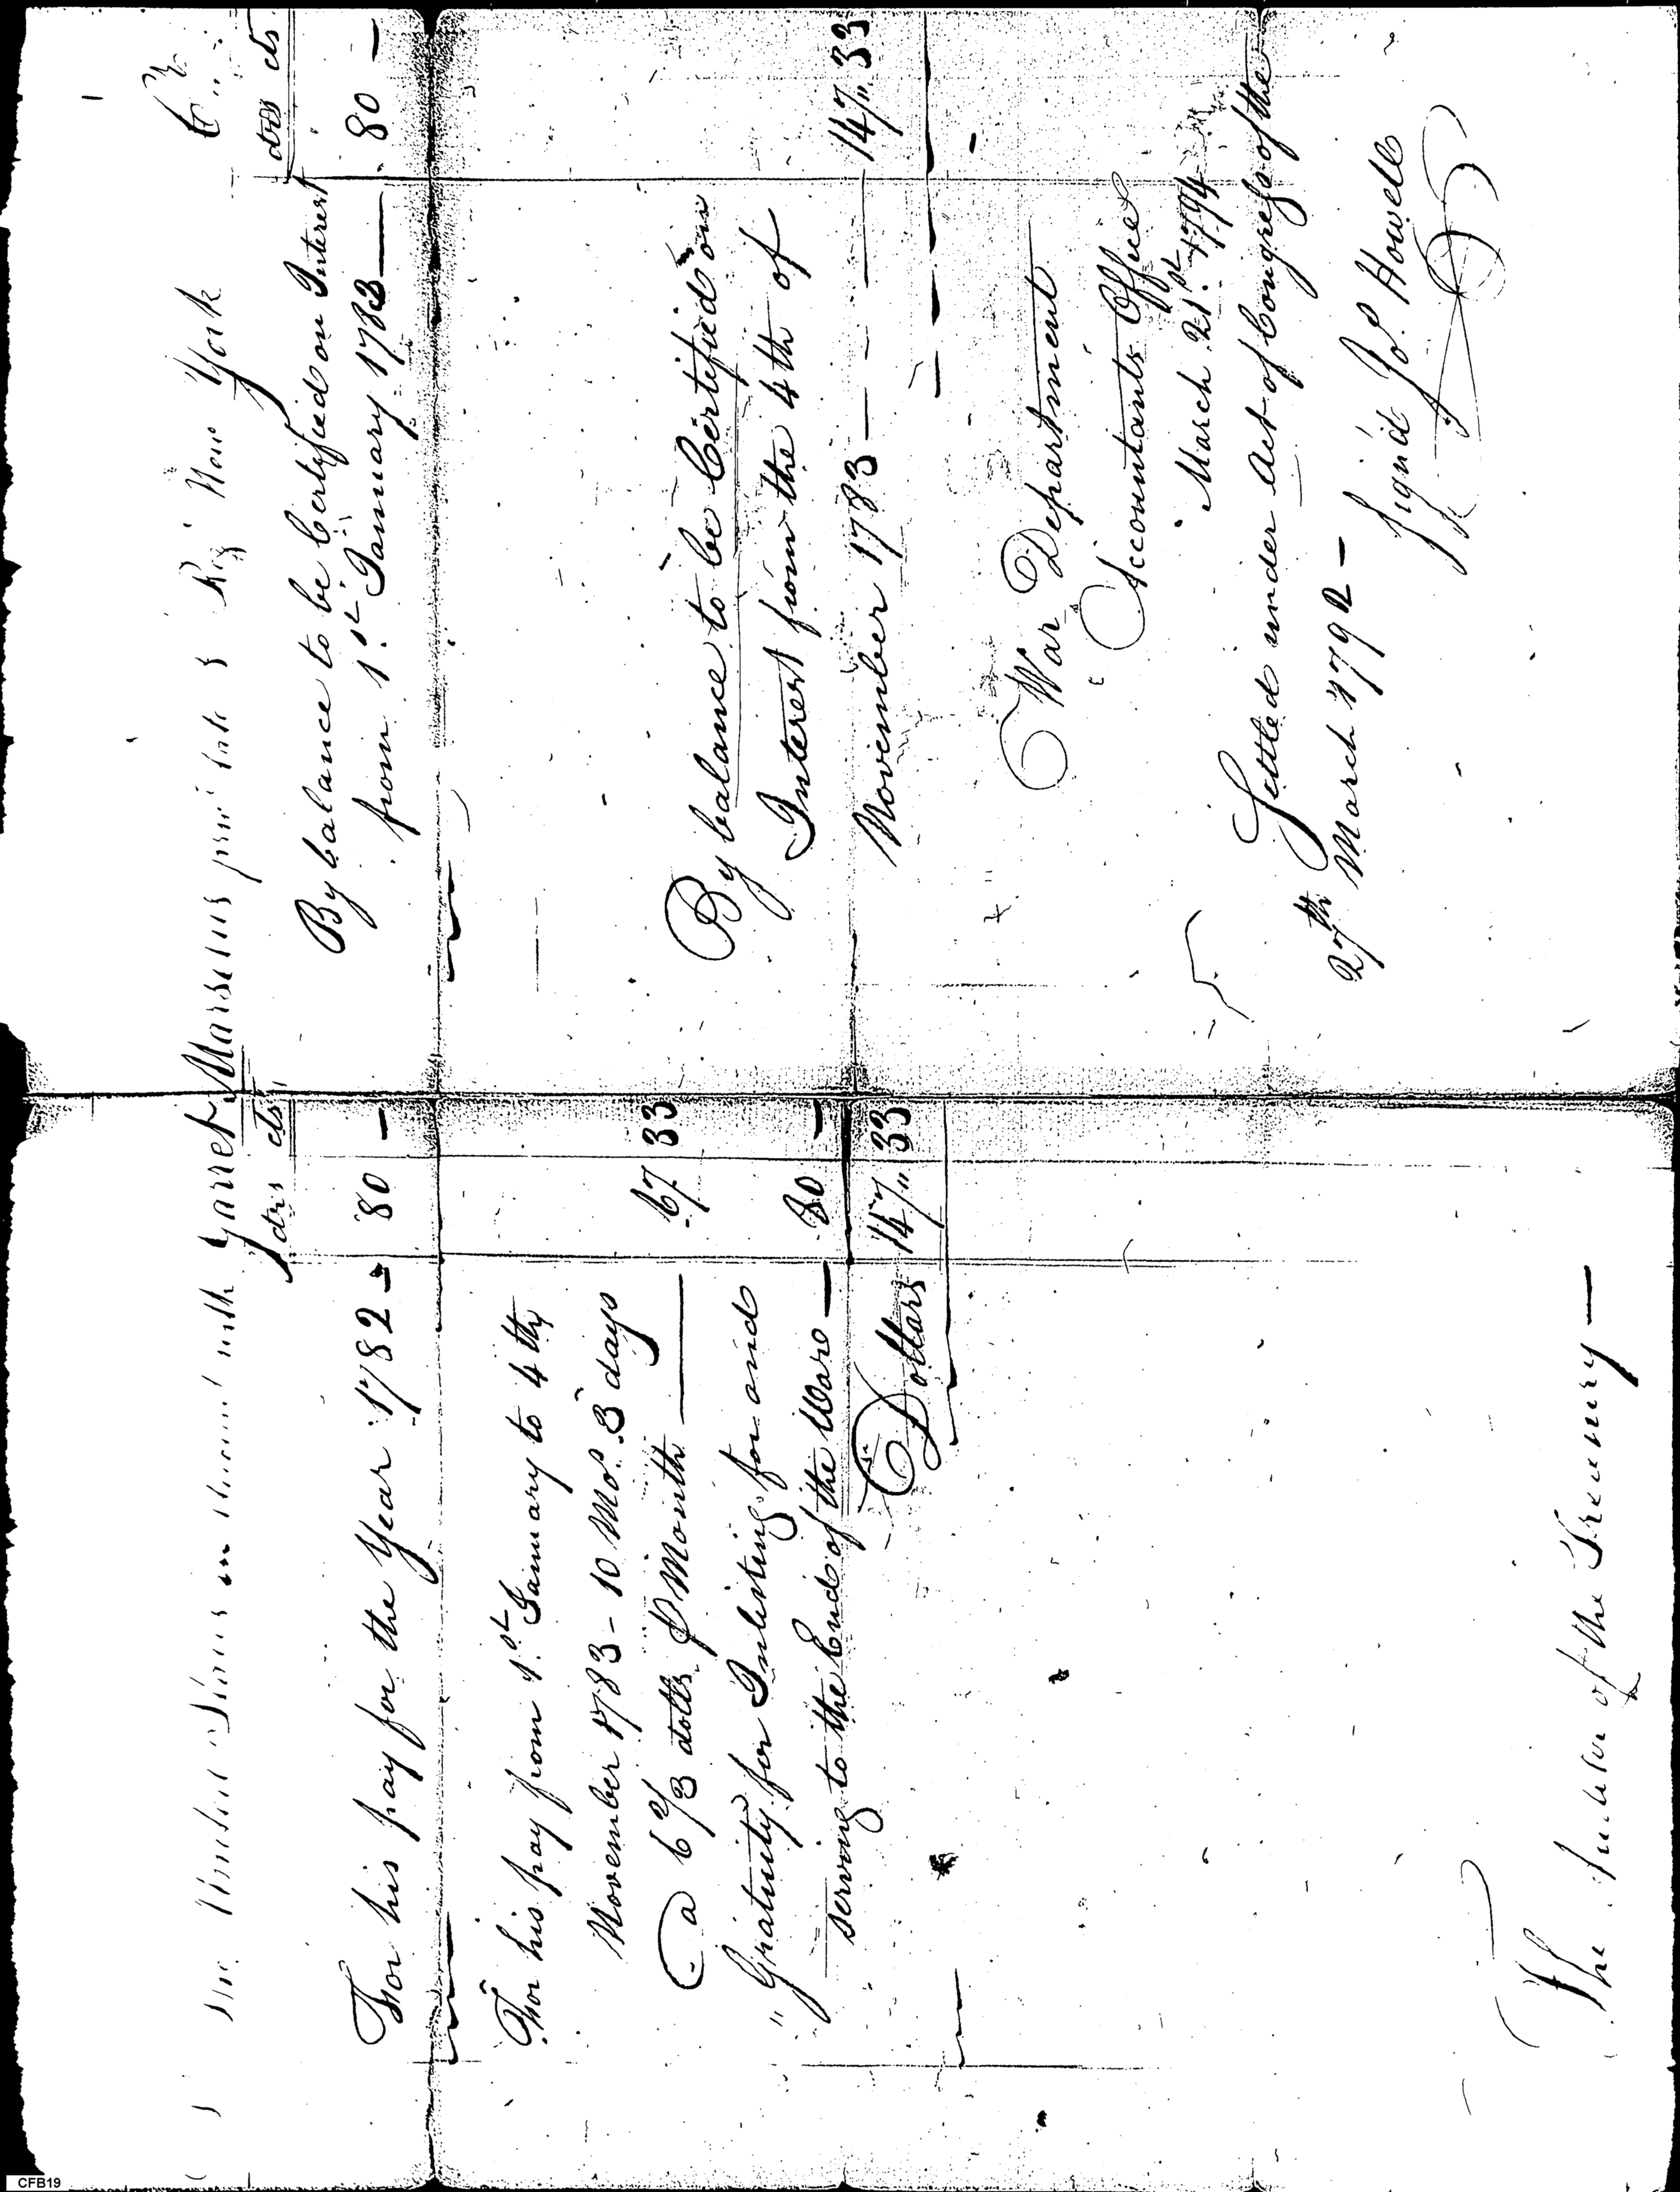 The United States in Account with Garret Marselius private 3 Reg. New York Cr
drs cts
For his pay for the Year 1782 – 80 –
For his pay from 1st January to 4th
November 1783 – 10 Mos. 3 days
@ 6 2/3 dolls ⅌ Month — 67 33
" Gratuity for Inlisting for and
serving to the End of the Ware — 80 –
Dollars 147" 33
drs cts
By balance to be Certified on Interest
from 1st January 1783 — 80 –
By balance to be Certified on
Interest from the 4th of
November 1783 — 147" 33
War Department
Accountants Office
March 21st 1794
Settled under Act of Congress of the
27th March 1792 –
Sign'd Jo. Howell
The Auditor of the Treasury —
CFB19